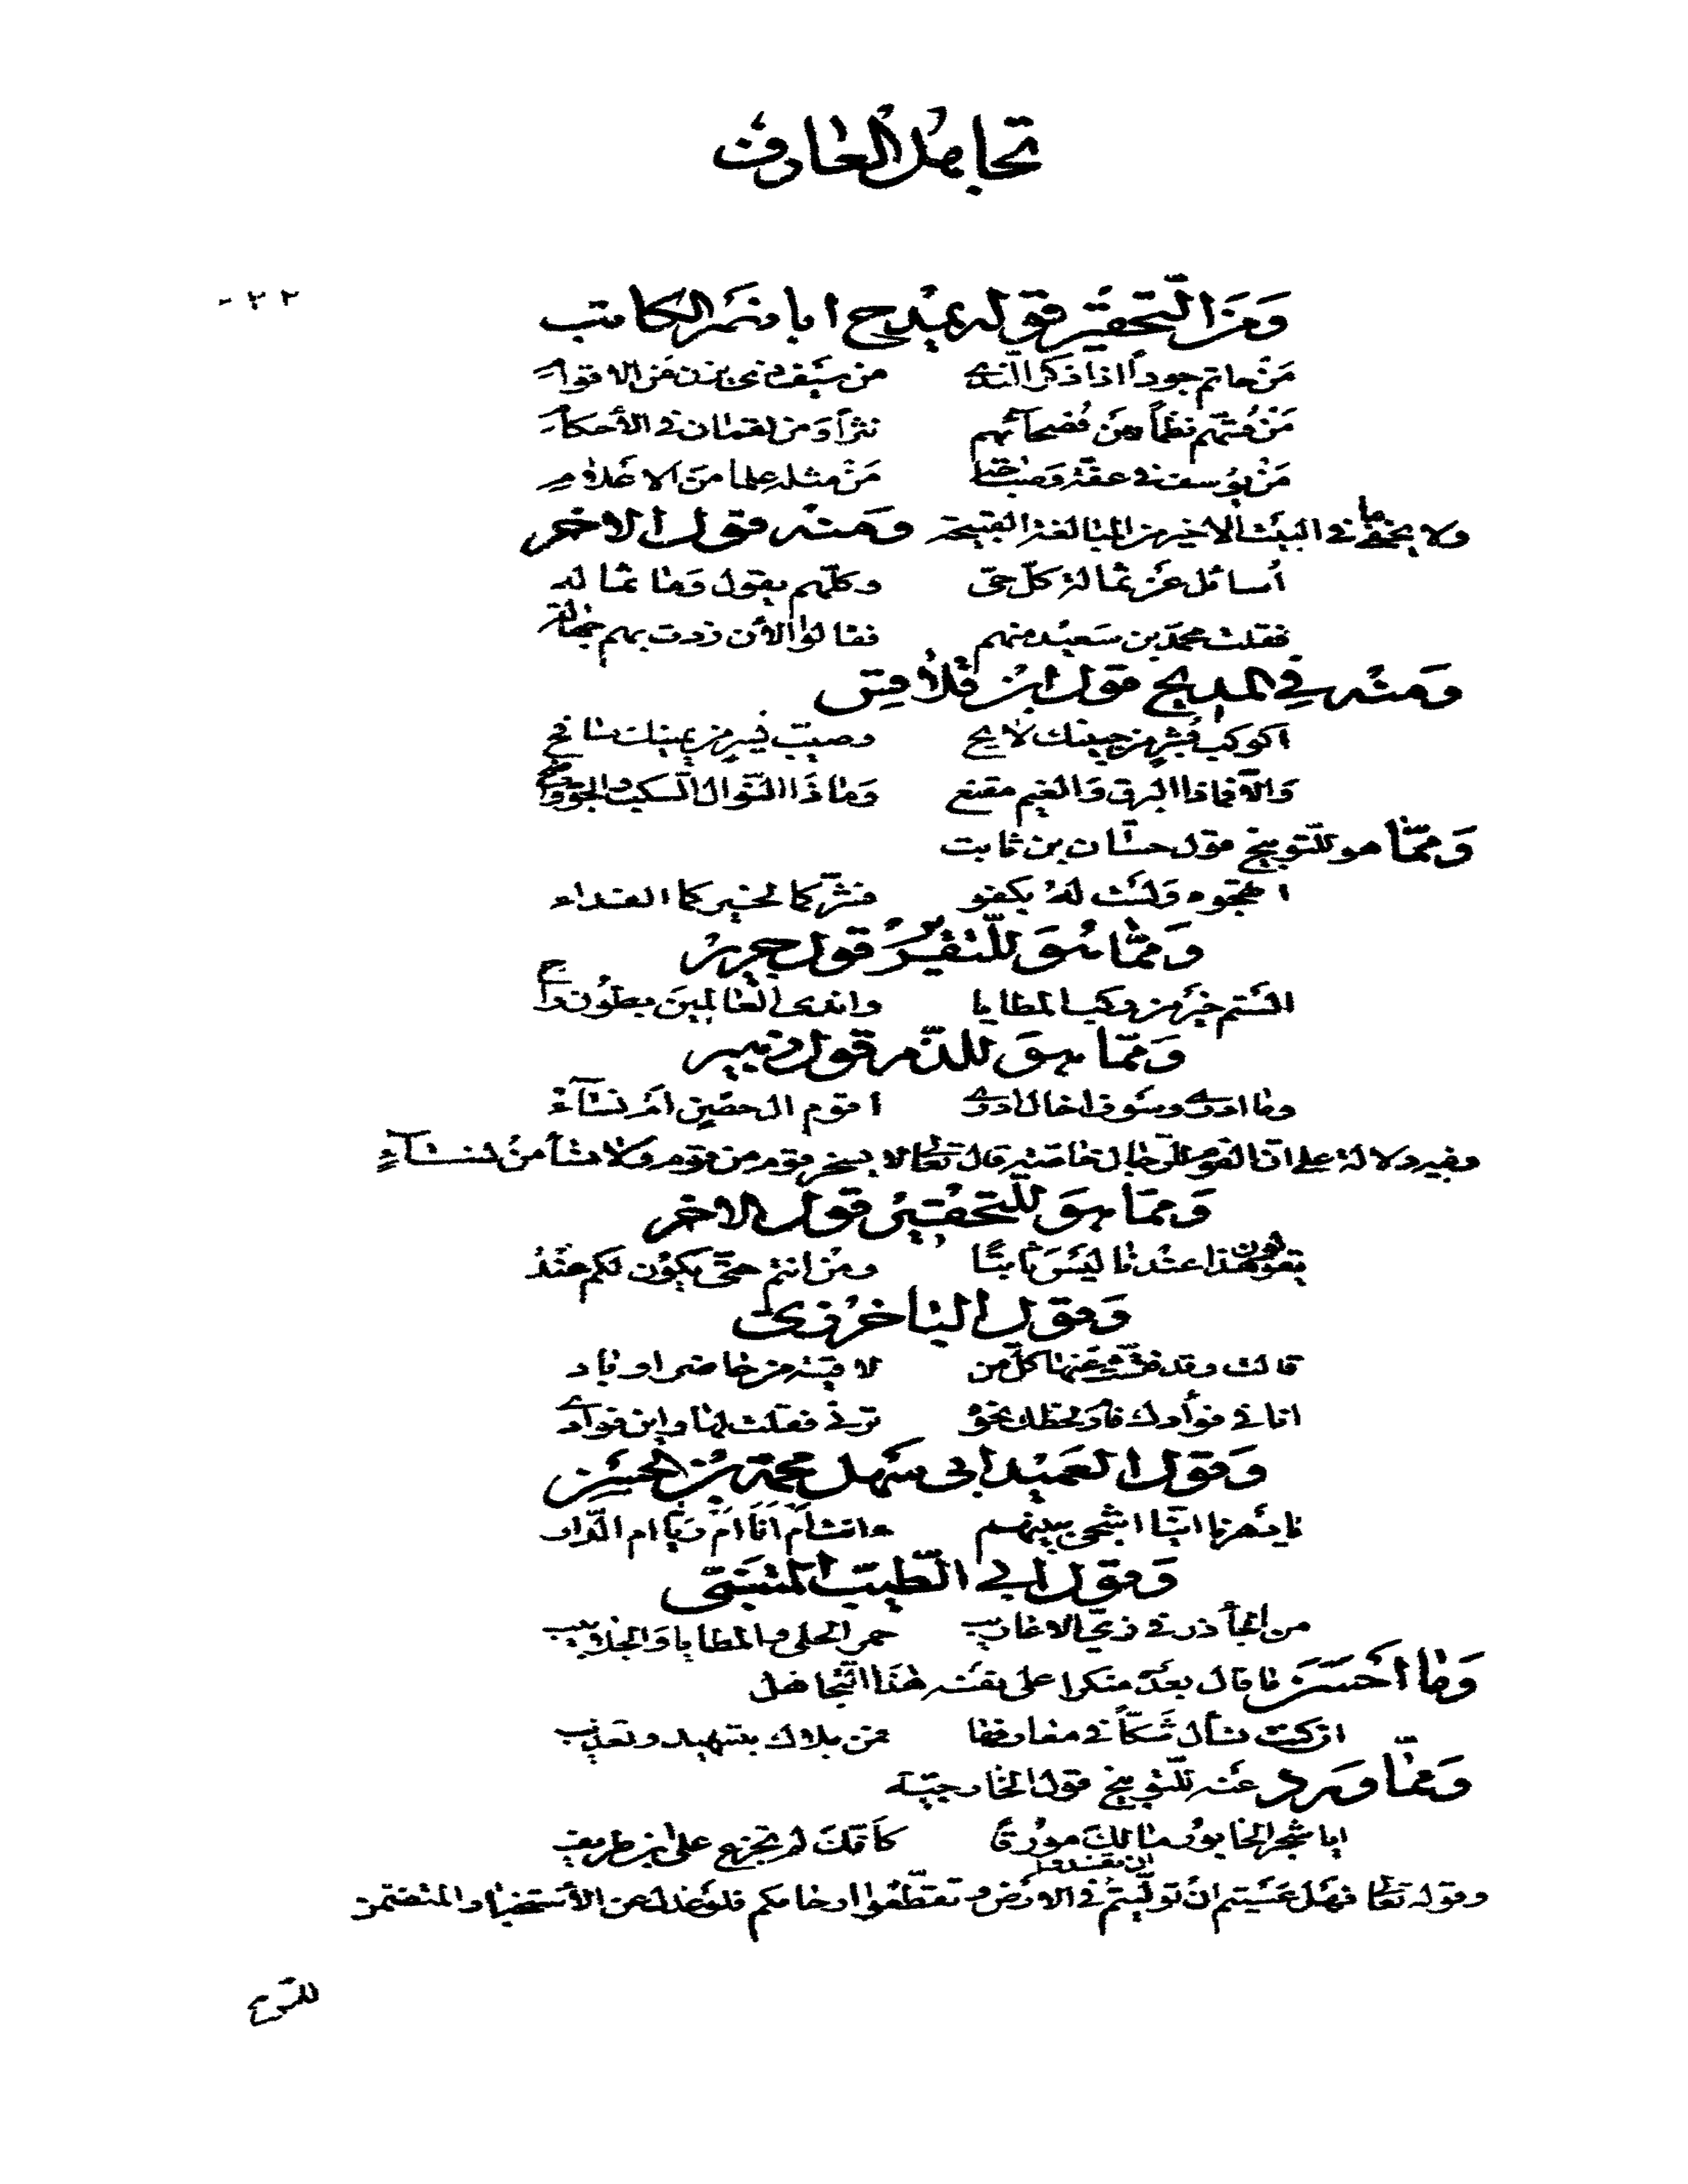 تجاهل العارف
٢٢
ومن التحقير قوله يمدح ابا نمر الكاتب
مَنْ حاتم جوداً اذا ذكر النَّدى من سيف ذى يزن من الاقوام
مَنْ قُسّهم نظماً ومن فُصحائهم نثراً وَمن لقمان في الأحكام
مَنْ يوسف في عفّة وَصباحة مَنْ مثله علما من الاعلام
ولا يخفى ما في البيت الاخير من المبالغة القبيحة ومنه قول الاخر
اُسائل عن ثمالة كلّ حىّ وكلّهم يقول وَما ثماله
فقلت محمّد بن سَعيد منهم فقالوا الأن زدت بهم جهاله
وَمنه في المديح قول ابن قلاقس
اكوكب بُشرٍ من جبينك لايح وصيّب من يمينك سافح
وَالّا فماذا البرق وَالغيم مقنع وَما ذَا النّوال السكب والجوّ
وَممّا هو للتّوبيخ قول حسّان بن ثابت
اتهجوه وَلست لهُ بكفو فشرّكما لخيركما الفداء
وَممّا هوَ للتّقريرُ قول جرير
السْتم خيْر من ركب المطايا واندى العالمينَ بطُون راح
وَممّا هوَ للذّم قول زهير
وما ادرى وسَوف اخال ادرى اقوم ال حصْنٍ امْ نسآءُ
وفيه دلالة على انّ القوم للرّجال خاصّة قال تعالى لا يسخر قوم من قوم ولا نسأ منُ نسآءٍ
وَممّا هوَ للتّحقيْر قول الاخر
يقولون هذا عنْدنا ليْسَ ثابتًا ومنْ انتم حتّى يكوُن لكم عنْدُ
وَقول الباخرْزى
قالت وقد فتّشت عَنها كلّ من لاقيته من حاضر او باد
انا في فوأدك فارم لحظك نحوْ ترنى فقلت لها واين فوادى
وَقول العَميْد ابى سَهل محمّد بْن الحسَن
وَقول ابي الطّيب المتنبّى
من الجأذر في زيّ الاعاريب حمر الحلى والمطايا وَالجلابيب
وَما احْسَنَ ما قال بعدَه منكرا على نفسْه هٰذَا التّجاهل
ان كنت تسأل شَكّاً في معارفها فمن بلاك بتسهيد وتعذيب
وَممّا ورد عنه للتّوبيخ قول الخارجيّة
ايا شجر الخابوُر مٰا لكَ موُرقًا كاَنّكَ لم تجزع على ابن طريف
وقوله تعالى فهَلْ عَسَيتم انْ تولّيتُمْ ان تفسدوا في الارْض وتقتطّعُوا ارحامكم فلوْ عدل عن الأستفهام المتضمّن
للتوبيخ